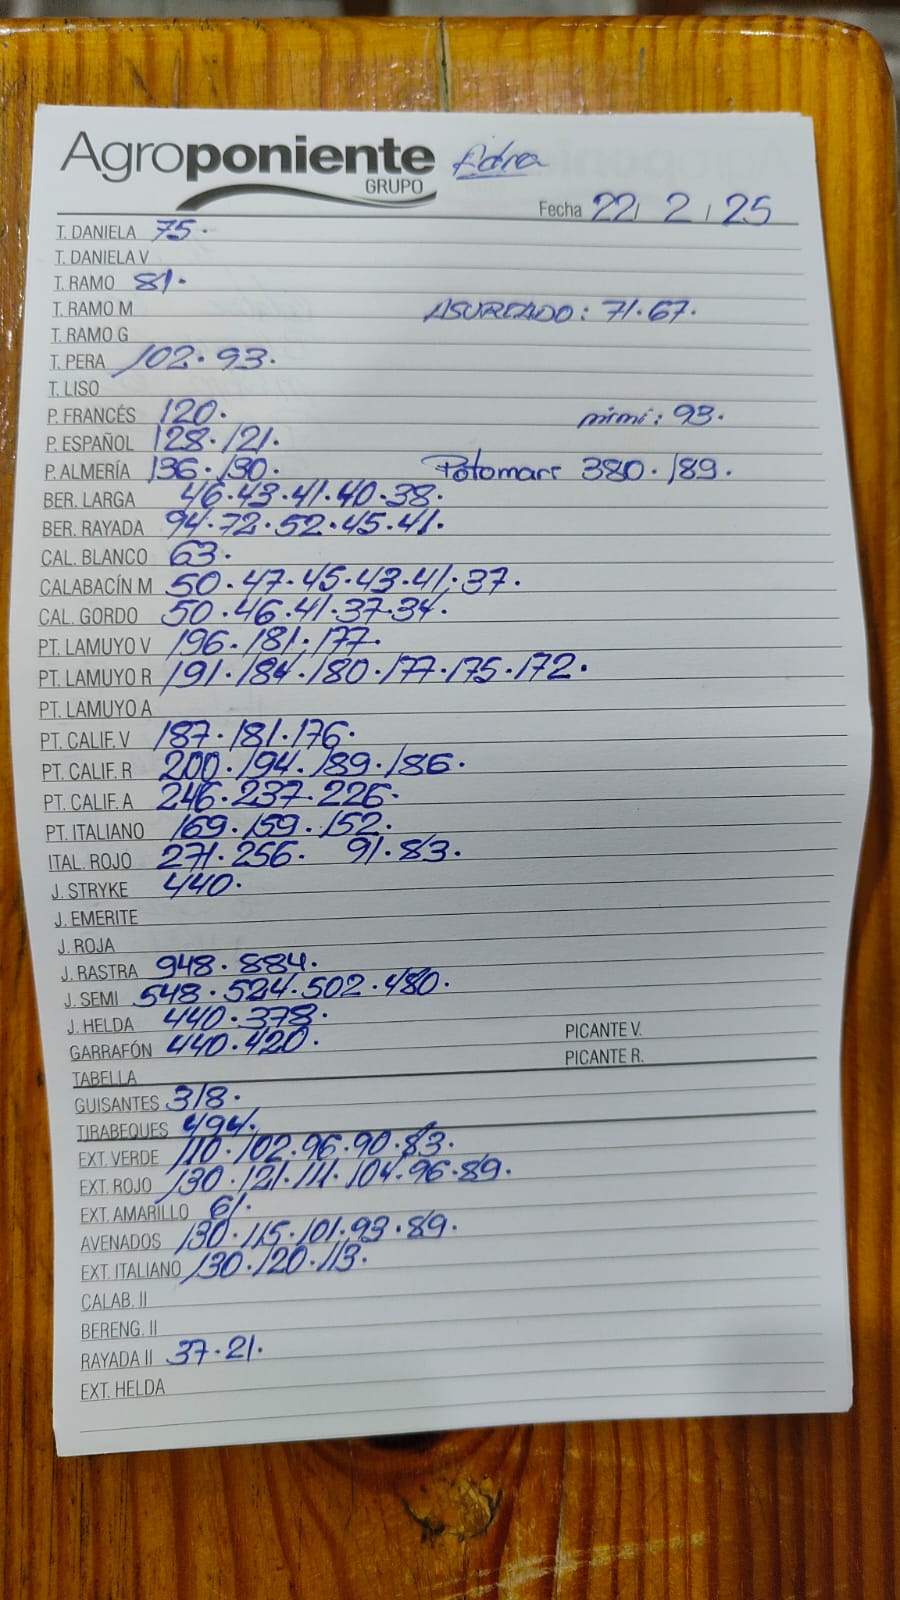 Agroponiente Adra
GRUPO
Fecha 22 / 2 / 25
T. DANIELA 75.
T. DANIELA V
T. RAMO 81.
T. RAMO M ASURCADO: 71.67.
T. RAMO G
T. PERA 102.93.
T. LISO
P. FRANCÉS 120. mimi: 93.
P. ESPAÑOL 128.121.
P. ALMERÍA 136.130. Potomarr 380.189.
BER. LARGA 46.43.41.40.38.
BER. RAYADA 94.72.52.45.41.
CAL. BLANCO 63.
CALABACÍN M 50.47.45.43.41.37.
CAL. GORDO 50.46.41.37.34.
PT. LAMUYO V 196.181.177.
PT. LAMUYO R 191.184.180.177.175.172.
PT. LAMUYO A
PT. CALIF. V 187.181.176.
PT. CALIF. R 200.194.189.186.
PT. CALIF. A 246.237.226.
PT. ITALIANO 169.159.152.
ITAL. ROJO 271.256. 91.83.
J. STRYKE 440.
J. EMERITE
J. ROJA
J. RASTRA 948.884.
J. SEMI 548.524.502.480.
J. HELDA 440.378.
PICANTE V.
GARRAFÓN 440.420.
PICANTE R.
TABELLA
GUISANTES 318.
TIRABEQUES 494.
EXT. VERDE 110.102.96.90.83.
EXT. ROJO 130.121.111.104.96.89.
EXT. AMARILLO 61.
AVENADOS 130.115.101.93.89.
EXT. ITALIANO 130.120.113.
CALAB. II
BERENG. II
RAYADA II 37.21.
EXT. HELDA